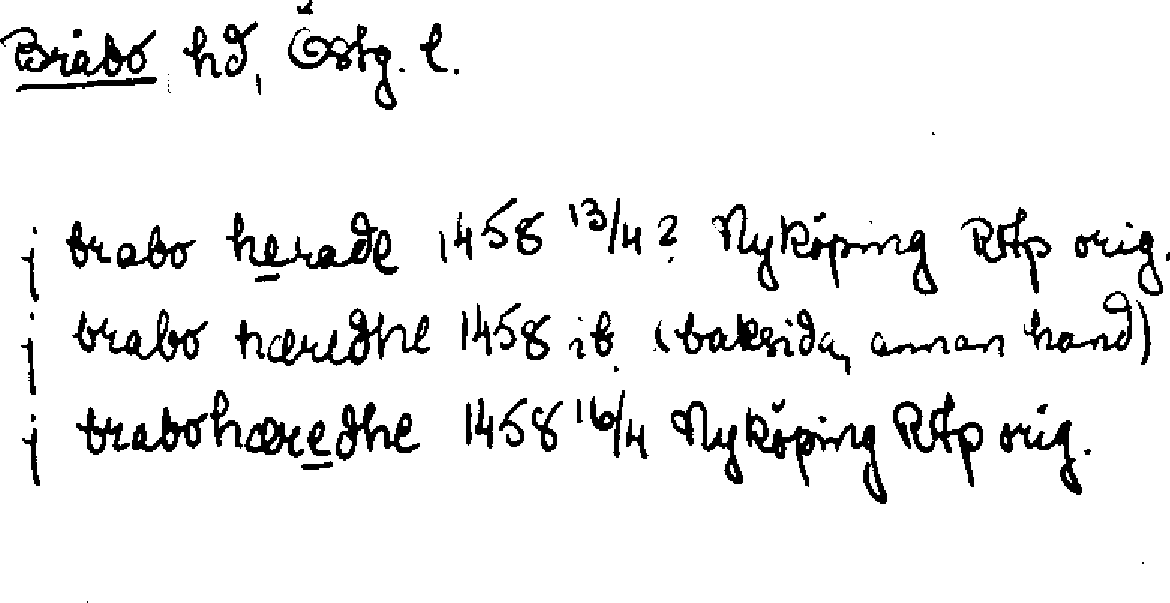 Bråbo hd, Östg. l.
j brabo herade 1458 13/4? Nyköping RAp orig.
j brabo hæredhe 1458 ib. (baksida, annan hand)
j brabohæredhe 1458 16/4 Nyköping RAp orig.